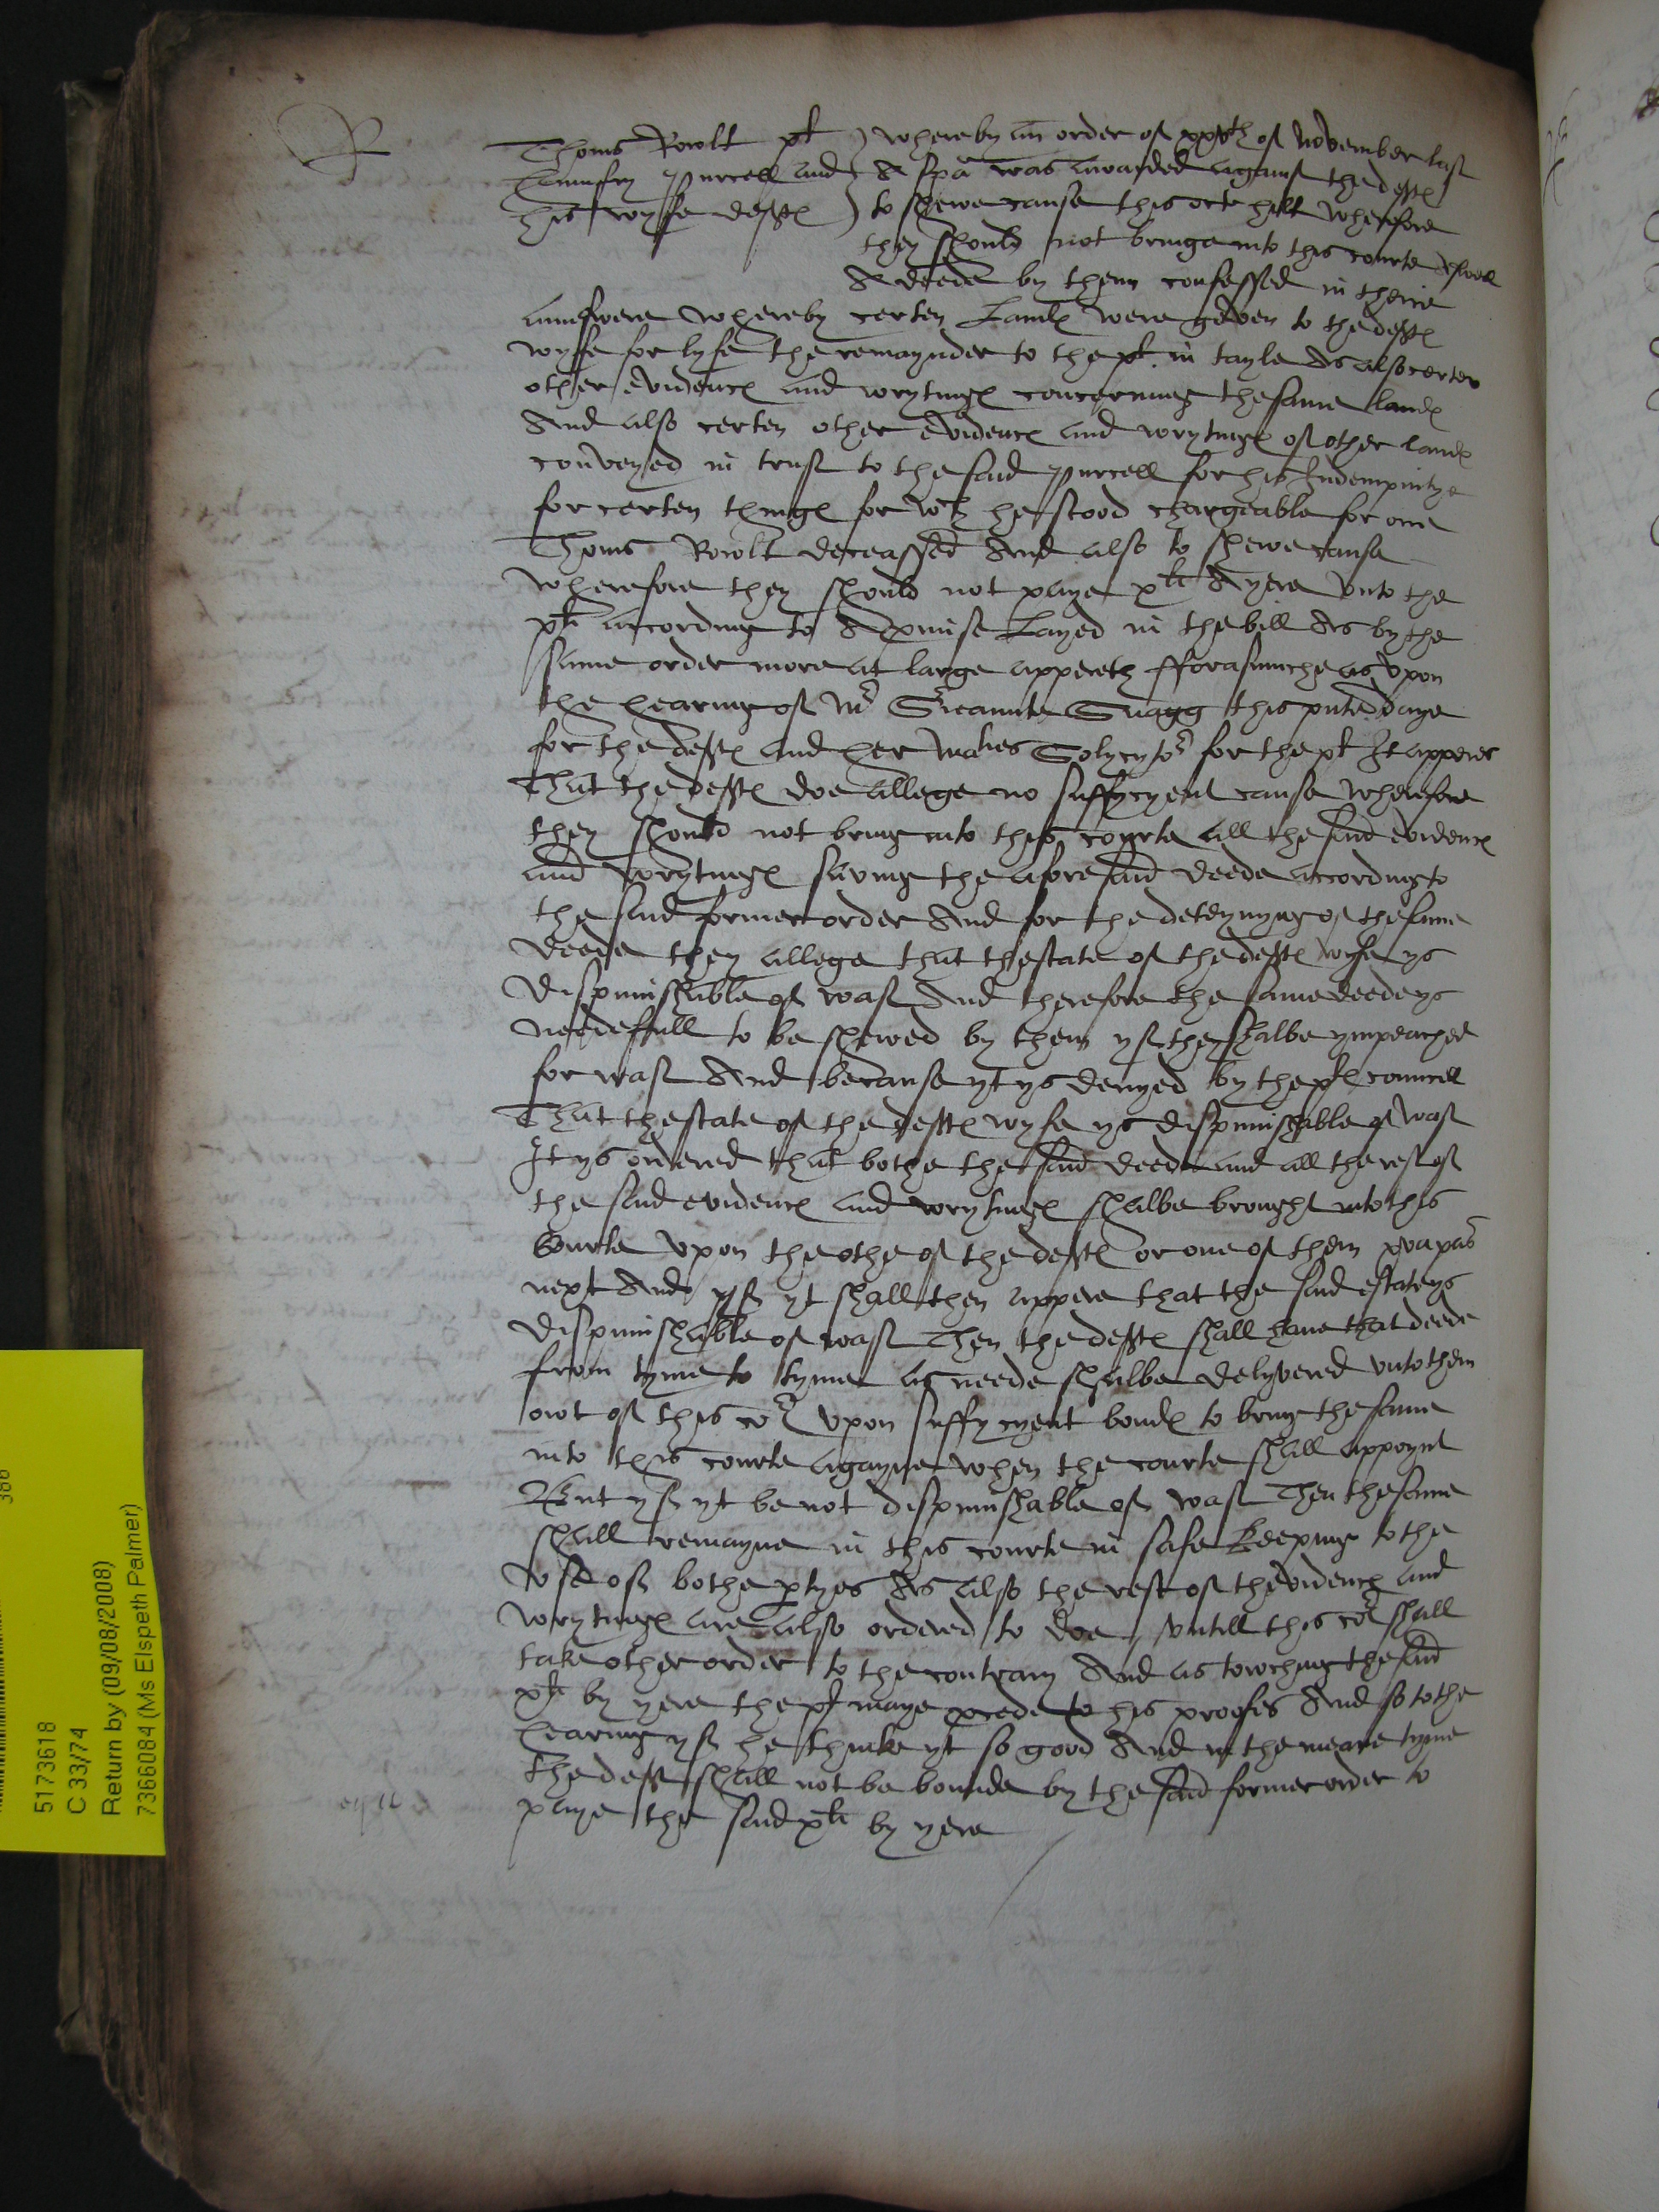 R
Thoms Rowlt plt ) whereby an order of xxvth of November last
Humfry Purcell and ) A spā was awarded against the deftes
his wyfe deftes ) to shewe cause this octr hill wherefore
they should not bringe into this courte aswell
A deede by them confessed in theire
aunswere whereby certen Landes were geven to the deftes
wyfe for lyfe the remaynder to the plt in tayle As also certen
other evidences and wrytinges concerning the same landes
And also certen other evidences and wrytinges of other landes
conveyed in trust to the said Purcell for his Indempnitye
for certen thinges for wch he stood chargeable for one
Thoms Rowlt deceassed And also to shewe cause
wherefore they should not paye xli A yere unto the
plt according to A pmise Layed in the bill As by the
same order more at large appereth fforasmuche as upon
the hearing of Mr Sreaunte Snagg this pnte daye
for the deftes and her Maties Solycytor for the plt It apperes
That the deftes doe allege no suffycyent cause wherefore
they should not bring into this courte all the said evidences
and wrytinges saving the aforesaid deede according to
the said former order And for the deteynyng of the same
deede they allege that thestate of the deftes wyfe ys
dispunishable of wast And therefore the same deede ys
needefull to be shewed by them yf they shalbe ympeached
for wast And because yt ys denyed by the pltes councell
That thestate of the deftes wyfe ys dispunishable of wast
It ys ordered that bothe the said deede and all the rest of
the said evidences and wrytinges shalbe brought into this
Courte upon the othe of the deftes or one of them xva pas
next And yf yt shall then appere that the said estate ys
dispunishable of wast Then the deftes shall have that deede
from tyme to tyme as neede shalbe delyvered unto them
owt of this cor upon suffycyent bondes to bring the same
into this courte agayne when the courte shall appoynt
But yf yt be not dispunishable of wast Then the same
shall remayne in this courte in safe keeping to the
use of bothe ptyes As also the rest of thevidences and
wrytinges are also ordered to doe, untill this cor shall
take other order to the contrary And as towching the said
xli by yere the plt maye pcede to his proofes And so to the
hearing yf he thinke yt so good And in the meane tyme
the deft shall not be bounde by the said former order to
paye the said xli by yere
5173618
C 33/74
Return by (09/08/2008)
7366084 (Ms Elspeth Palmer)